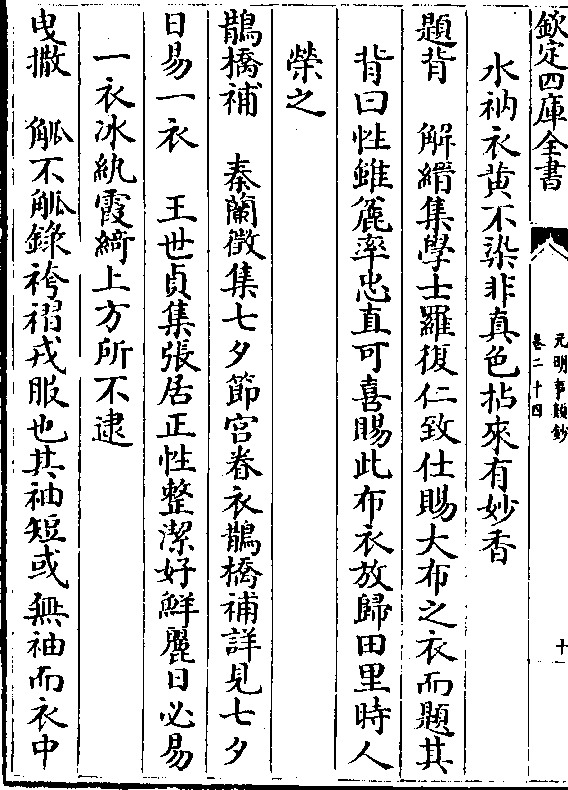 欽定四庫全書
元明事類鈔
卷二十四
十一
水衲衣黄不染非真色拈來有妙香
題背　解縉集學士羅復仁致仕賜大布之衣而題其
背曰性雖麄率忠直可喜賜此布衣放歸田里時人
榮之
鵲橋補　秦蘭徵集七夕節宫眷衣鵲橋補詳見七夕
日易一衣　王世貞集張居正性整潔好鮮麗日必易
一衣冰紈霞綺上方所不逮
曳撒　觚不觚錄袴褶戎服也其袖短或無袖而衣中